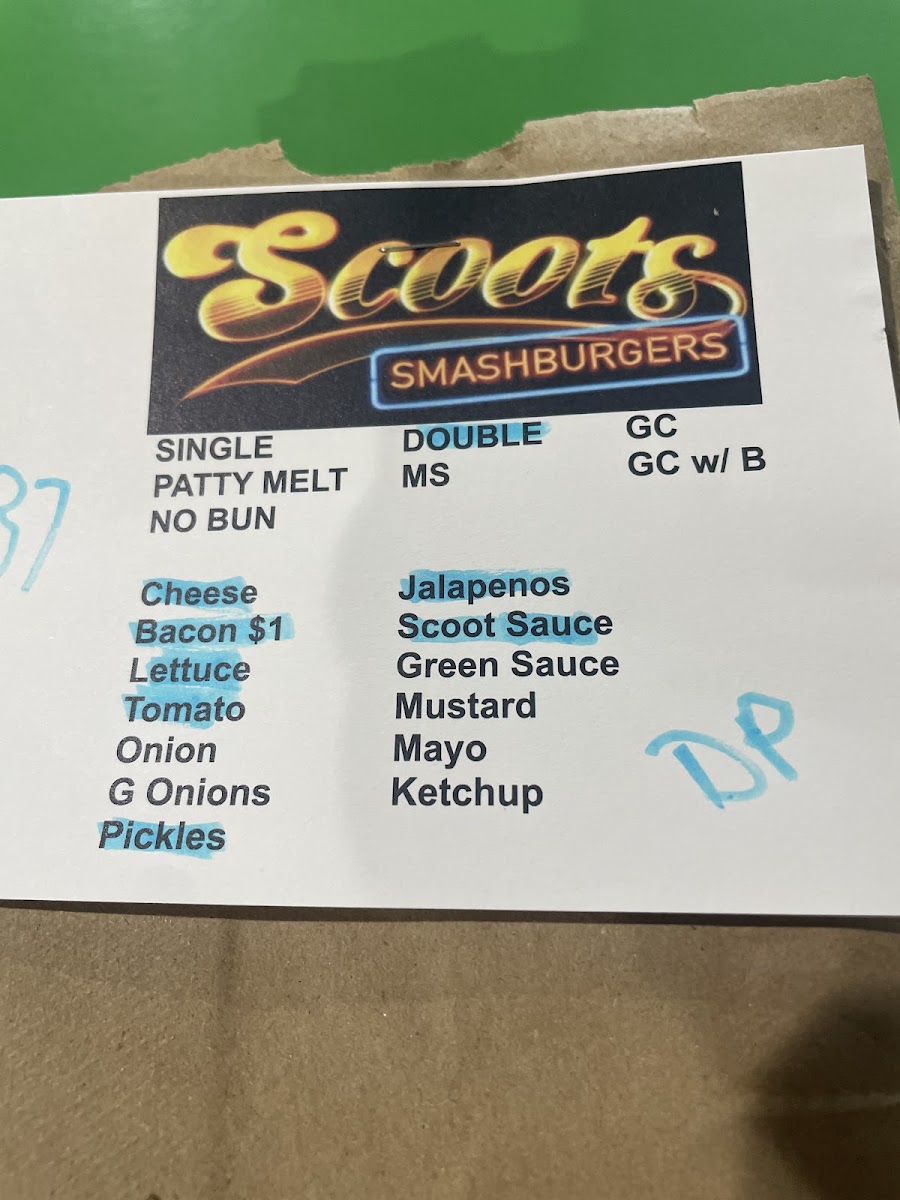 Scoots
SMASHBURGERS
SINGLE DOUBLE GC
PATTY MELT MS GC w/ B
NO BUN
37
Cheese Jalapenos
Bacon $1 Scoot Sauce
Lettuce Green Sauce
Tomato Mustard
Onion Mayo
G Onions Ketchup
Pickles
DP